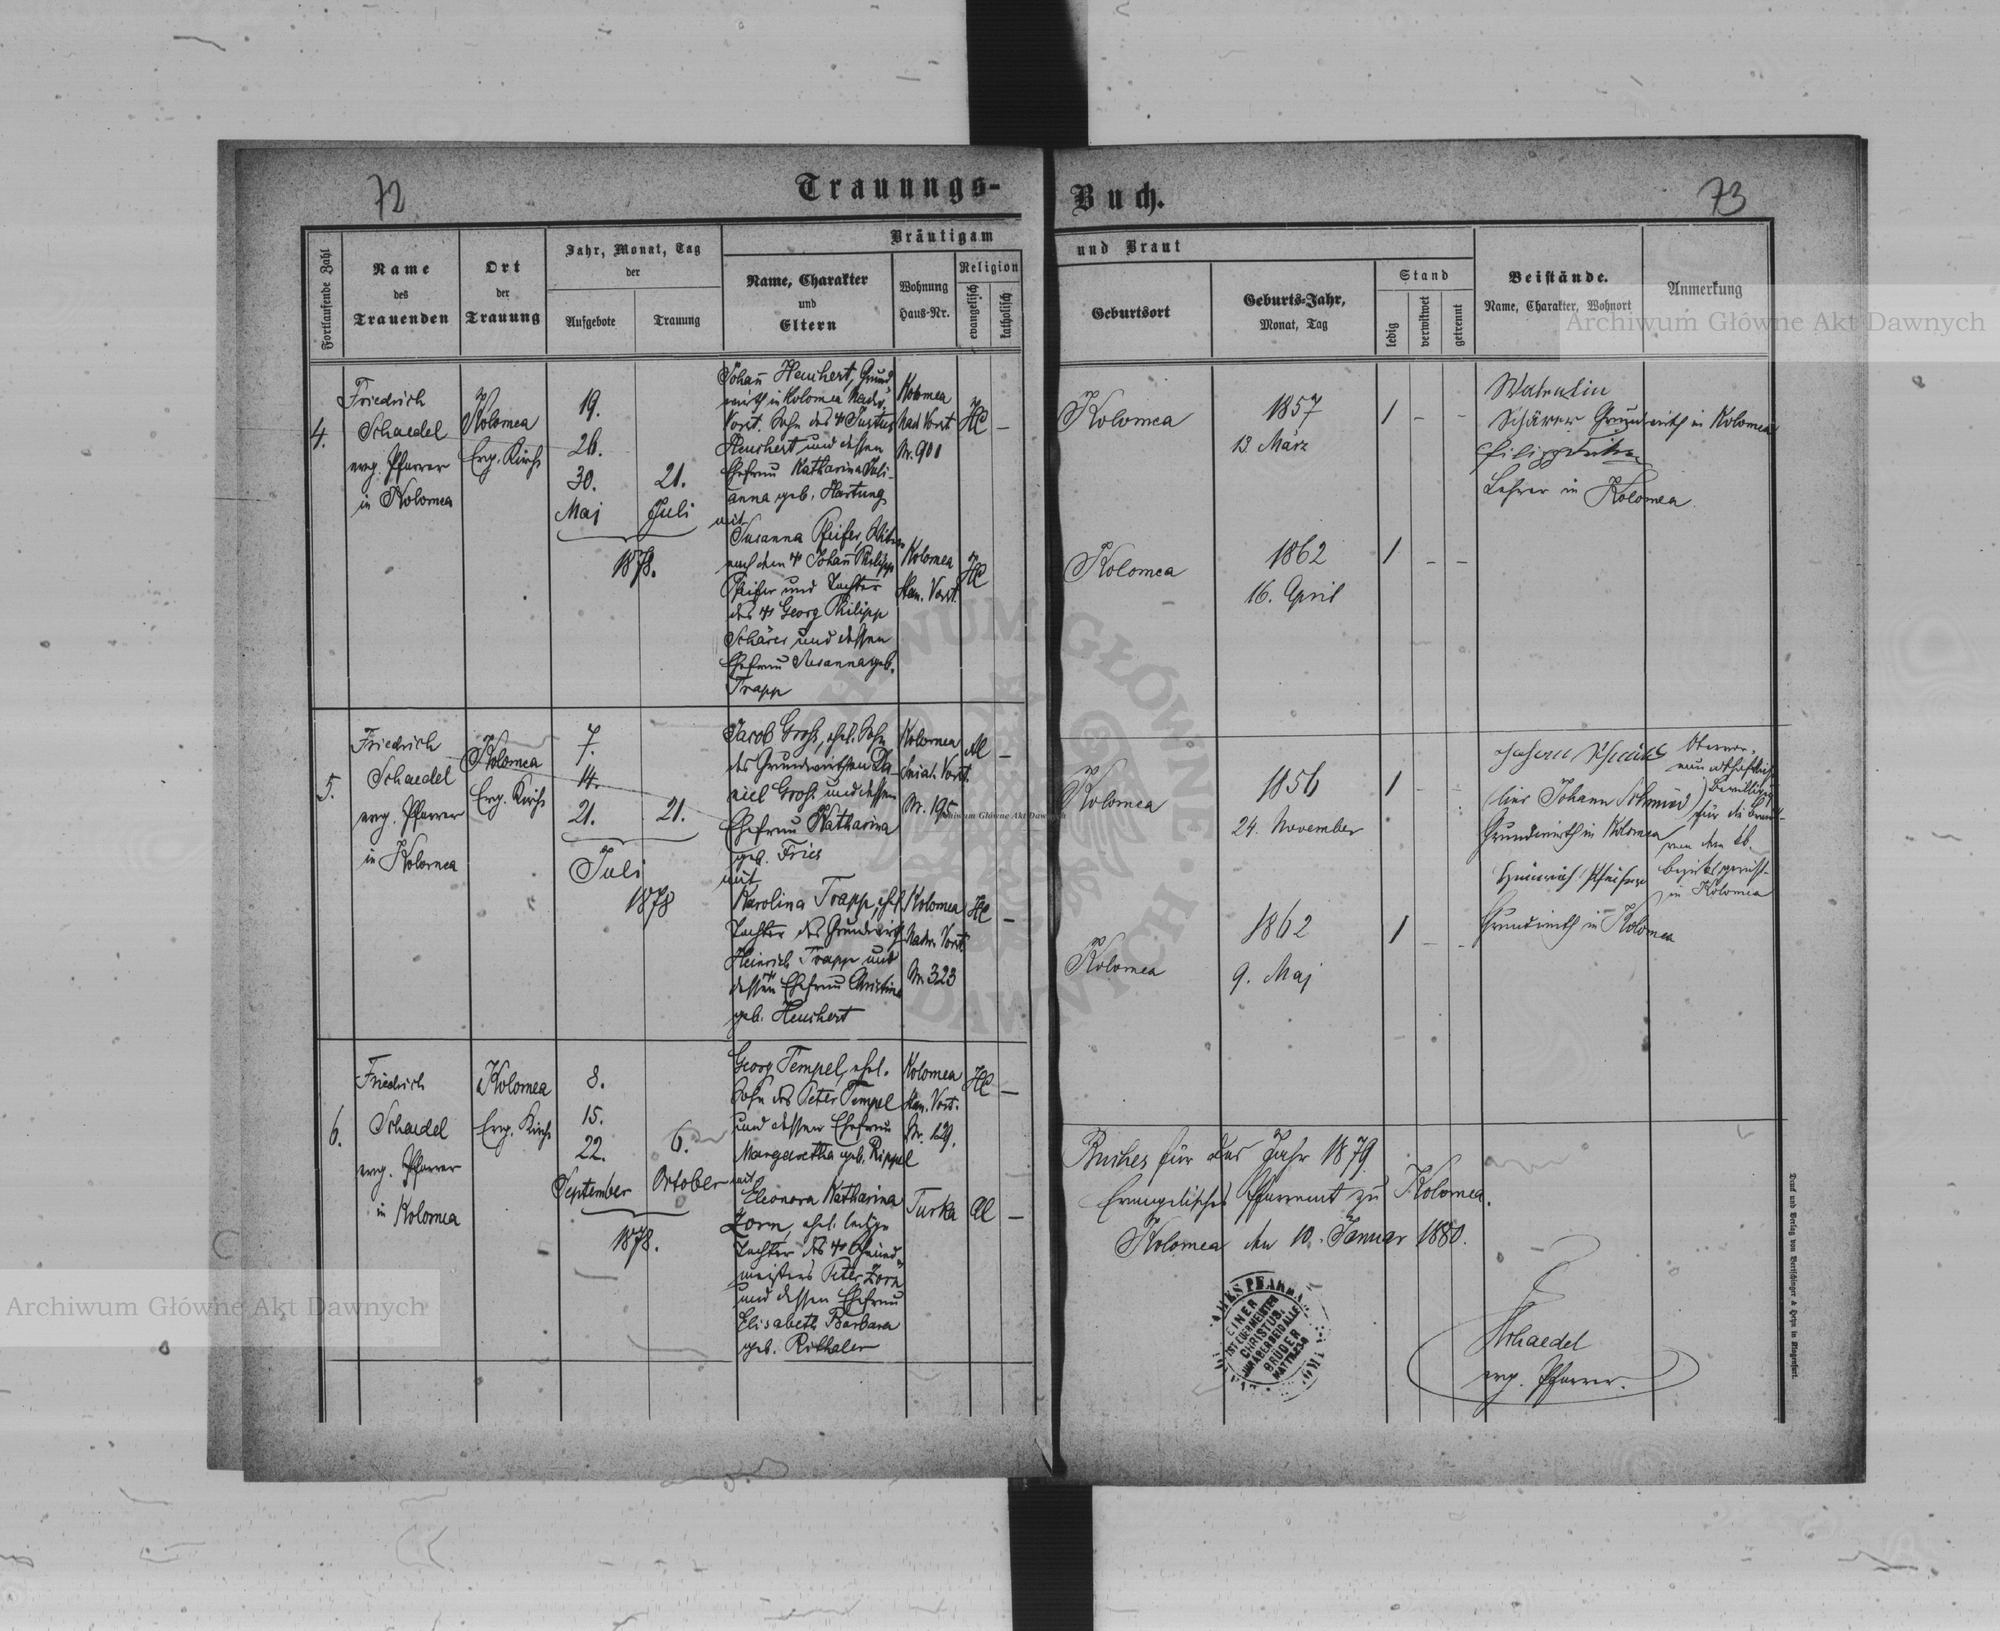 72
Trauungs-
Buch.
73
Fortlaufende Zahl
Name
des
Trauenden
Ort
der
Trauung
Jahr, Monat, Tag
der
Aufgebote
Trauung
Bräutigam
Name, Charakter
und
Eltern
Wohnung
Haus-Nr.
Religion
evangelisch
katholisch
und Braut
Geburtsort
Geburts-Jahr,
Monat, Tag
Stand
ledig
verwitwet
getrennt
Beistände.
Name, Charakter, Wohnort
Anmerkung
Archiwum Główne Akt Dawnych
4.
Friedrich
Schaedel
evg. Pfarrer
in Kolomea
Kolomea
Evg. Kirche
19.
26.
30.
Maj
21.
Juli
1878.
Johann Heuchert, Grund-
wirth in Kolomea
Vorst. Sohn des Justus
Heuchert und dessen
Ehefrau Katharina Juli-
anna geb. Hartung
mit
Susanna Pfeifer, Witwe
nach dem Johann Philipp
Pfeifer und Tochter
des Georg Philipp
Schärer und dessen
Ehefrau Susanna geb.
Trapp
Kolomea
Nad. Vorst.
Nr. 901
HC
–
Kolomea
Vorst.
HC
Kolomea
1857
13. März
1 – –
Kolomea
1862
16. April
1 – –
Valentin
Schärer Grundwirth in Kolomea
Lehrer in Kolomea
5.
Friedrich
Schaedel
evg. Pfarrer
in Kolomea
Kolomea
Evg. Kirche
7.
14.
21.
21.
Juli
1878
Jacob Groß, ehel. Sohn
des Grundwirthen Da-
niel Groß und dessen
Ehefrau Katharina
geb. Fries
mit
Karolina Trapp, ehel.
Tochter des Grundwirth
Heinrich Trapp und
dessen Ehefrau Christina
geb. Heuchert
Kolomea
Sniat. Vorst.
Nr. 195
AC
–
Kolomea
Nadw. Vorst.
Nr. 323
HC
–
Kolomea
1856
24. November
1 – –
Kolomea
1862
9. Maj
1 – –
(lies Johann Schmied)
Grundwirth in Kolomea
Heinrich Pfeifer
Grundwirth in Kolomea
Bewilligung
für die Braut
von dem
Bezirksgericht
in Kolomea
6.
Friedrich
Schaedel
evg. Pfarrer
in Kolomea
Kolomea
Evg. Kirche
8.
15.
22.
September
6.
October
1878.
Georg Tempel, ehel.
Sohn des Peter Tempel
und dessen Ehefrau
Margaretha geb. Rippel
mit
Eleonora Katharina
Zorn, ehel. ledige
Tochter des Schmied-
meisters Peter Zorn
und dessen Ehefrau
Elisabeth Barbara
geb. Rithaler
Kolomea
Vorst.
Nr. 129.
HC
–
Turka
AC
–
Buches für das Jahr 1879
Evangelisches Pfarramt zu Kolomea.
Kolomea den 10. Januar 1880.
EINER
IST EUER MEISTER
CHRISTUS.
IHR ABER SEID ALLE
BRÜDER
MATTH. 23.8
Schaedel
evg. Pfarrer.
Archiwum Główne Akt Dawnych
Archiwum Główne Akt Dawnych
ARCHIWUM GŁÓWNE AKT DAWNYCH